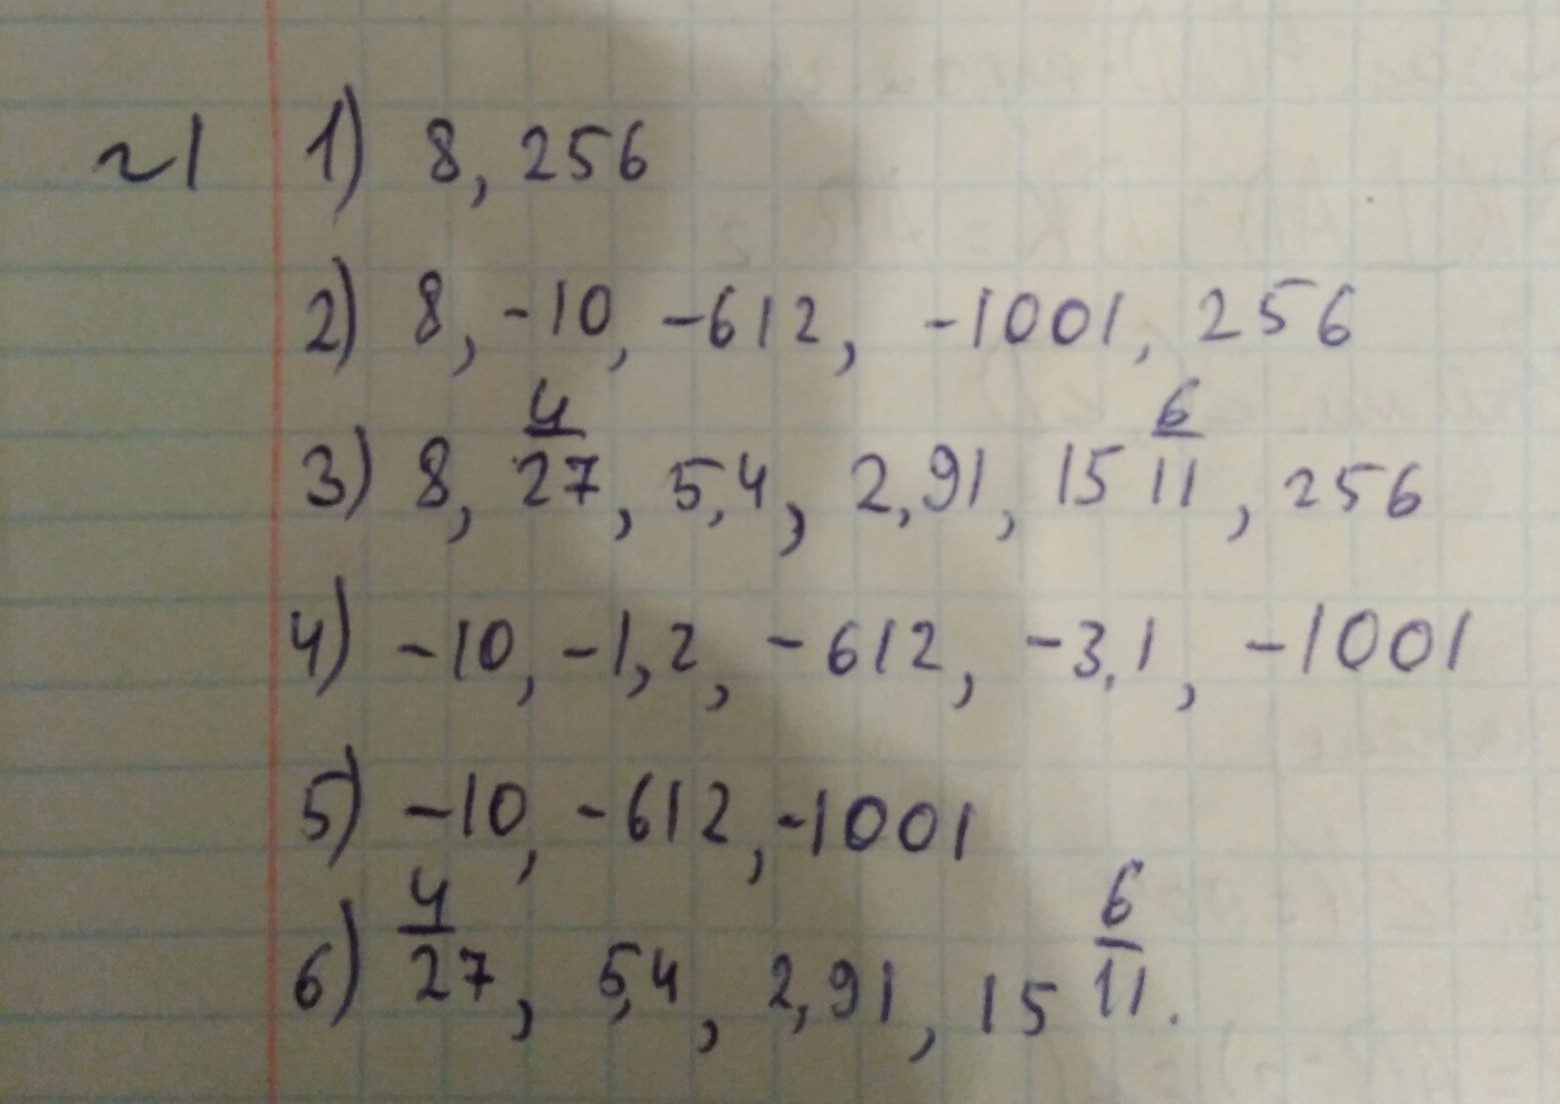 ~1 1) 8, 256
2) 8, -10, -612, -1001, 256
3) 8, 4/27, 5,4, 2,91, 15 6/11, 256
4) -10, -1,2, -612, -3,1, -1001
5) -10, -612, -1001
6) 4/27, 5,4, 2,91, 15 6/11.